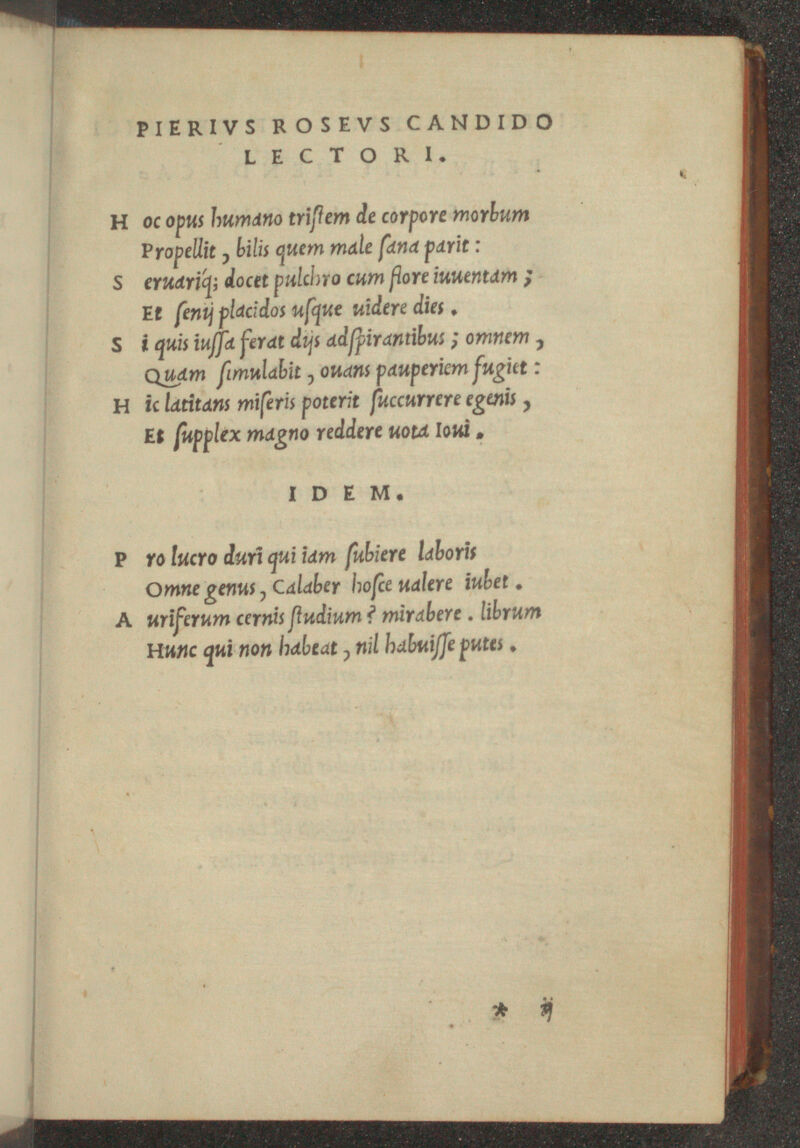 PIERIVS ROSEVS CANDIDO
LECTORI.
H oc opus humano triſtem de corpore morbum
Propellit, bilis quem male ſana parit:
S eruariq; docet pulchro cum flore iuuentam;
Et ſenij placidos uſque uidere dies.
S i quis iuſſa ferat dijs adſpirantibus; omnem,
Quam ſimulabit, ouans pauperiem fugiet:
H ic latitans miſeris poterit ſuccurrere egenis,
Et ſupplex magno reddere uota Ioui.
IDEM.
P ro lucro duri qui iam ſubiere laboris
Omne genus, Calaber hoſce ualere iubet.
A uriferum cernis ſtudium? mirabere. librum
Hunc qui non habeat, nil habuiſſe putes.
* ij